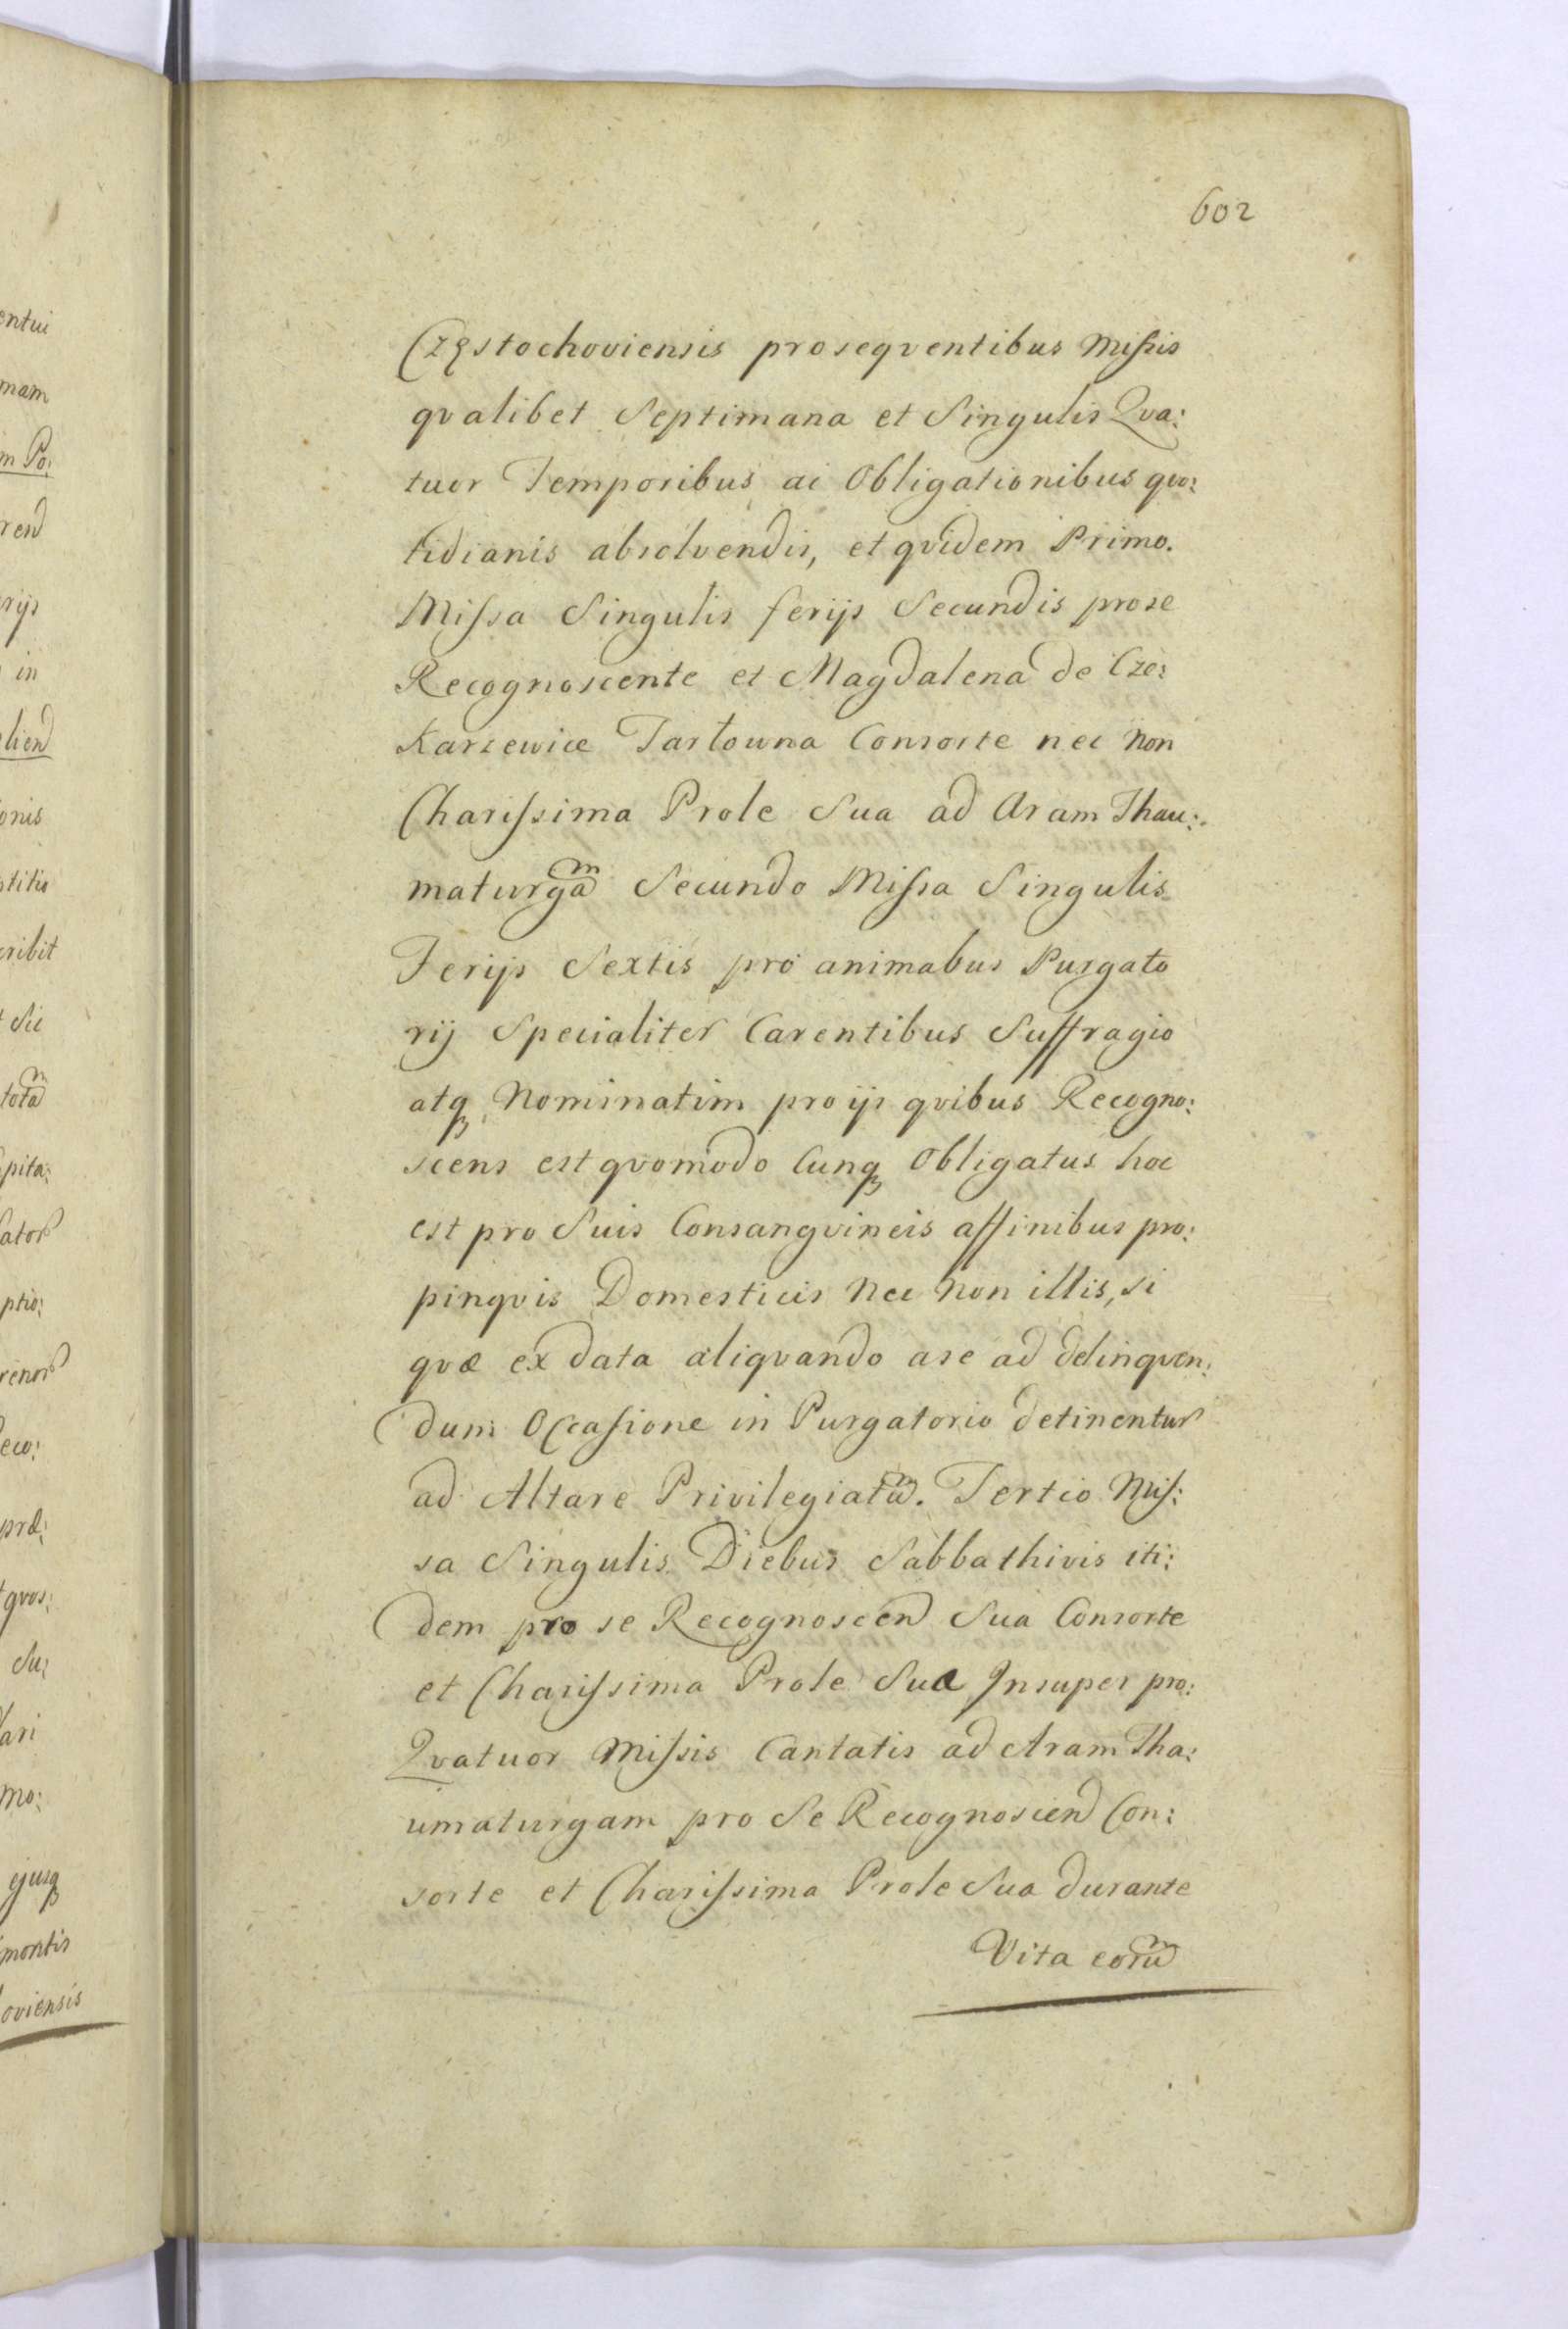 602
Częstochoviensis proseqventibus Missis
qvalibet Septimana et Singulis Qva:
tuor Temporibus ac Obligationibus qvo:
tidianis absolvendis, et qvidem Primo.
Missa Singulis ferijs Secundis pro se
Recognoscente et Magdalena de Cze:
karzewice Tarłowna Consorte nec non
Charissima Prole Sua ad Aram Thau:
maturgam̃ Secundo Missa Singulis
Ferijs Sextis pro animabus Purgato
rij Specialiter Carentibus Suffragio
atq Nominatim pro ijs qvibus Recogno:
scens est qvomodo Cunq Obligatus hoc
est pro Suis Consangvineis affinibus pro:
pinqvis Domesticis Nec non illis, si
qvæ ex data aliqvando a se ad delinqven:
dum Occasione in Purgatorio detinentur
ad Altare Privilegiatũ. Tertio Mis:
sa Singulis Diebus Sabbathivis iti:
dem pro se Recognoscen Sua Consorte
et Charissima Prole Sua Insuper pro:
Qvatuor Missis Cantatis ad Aram Tha:
umaturgam pro Se Recognoscen Con:
sorte et Charissima Prole Sua durante
Vita eorũ
entui
mam
m Po:
rend
rijs
in
lien
onis
titio
cribit
Sic
totã
pita:
ator
ptio:
renor
eco:
præ:
qvos:
Su:
ari
mo:
ejusq
montis
oviensis